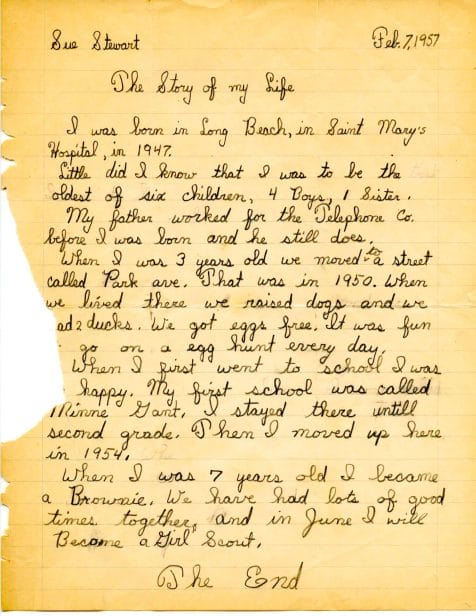 Sue Stewart Feb. 7, 1957
The Story of my Life
I was born in Long Beach, in Saint Mary's
Hospital, in 1947.
Little did I know that I was to be the
oldest of six children, 4 Boys, 1 Sister.
My father worked for the Telephone Co.
before I was born and he still does.
When I was 3 years old we moved to a street
called Park ave. That was in 1950. When
we lived there we raised dogs and we
ad 2 ducks. We got eggs free. It was fun
go on a egg hunt every day.
When I first went to school I was
happy. My first school was called
Minne Gant. I stayed there untill
second grade. Then I moved up here
in 1954.
When I was 7 years old I became
a Brownie. We have had lots of good
times together, and in June I will
Become a Girl Scout.
The End